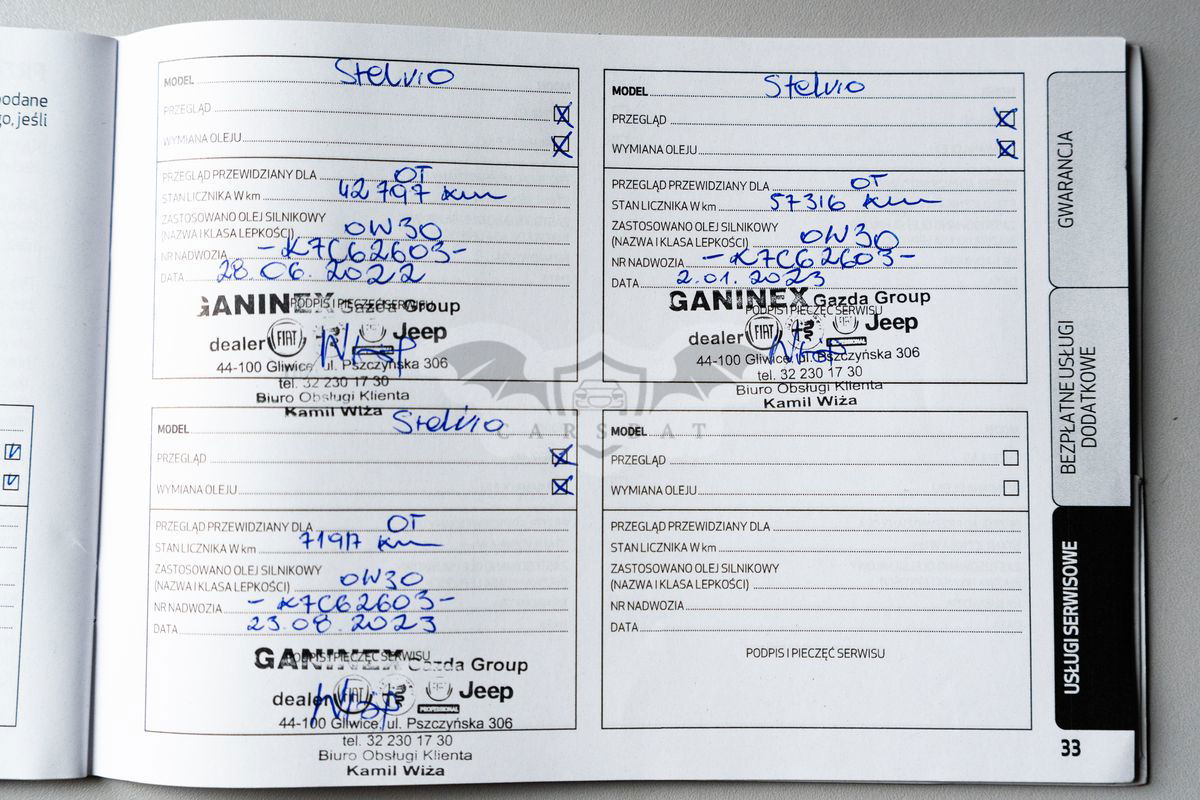 podane
go, jeśli
MODEL Stelvio
PRZEGLĄD
WYMIANA OLEJU
PRZEGLĄD PRZEWIDZIANY DLA OT
STAN LICZNIKA W km 42 797 km
ZASTOSOWANO OLEJ SILNIKOWY
(NAZWA I KLASA LEPKOŚCI) 0W30
NR NADWOZIA -K7C62603-
DATA 28.06.2022
PODPIS I PIECZĘĆ SERWISU
GANINEX Gazda Group
dealer FIAT Jeep
44-100 Gliwice, ul. Pszczyńska 306
tel. 32 230 17 30
Biuro Obsługi Klienta
Kamil Wiża
MODEL Stelvio
PRZEGLĄD
WYMIANA OLEJU
PRZEGLĄD PRZEWIDZIANY DLA OT
STAN LICZNIKA W km 57316 km
ZASTOSOWANO OLEJ SILNIKOWY
(NAZWA I KLASA LEPKOŚCI) 0W30
NR NADWOZIA -K7C62603-
DATA 2.01.2023
PODPIS I PIECZĘĆ SERWISU
GANINEX Gazda Group
dealer FIAT Jeep
44-100 Gliwice, ul. Pszczyńska 306
tel. 32 230 17 30
Biuro Obsługi Klienta
Kamil Wiża
CARSBAT
MODEL Stelvio
PRZEGLĄD
WYMIANA OLEJU
PRZEGLĄD PRZEWIDZIANY DLA OT
STAN LICZNIKA W km 71917 km
ZASTOSOWANO OLEJ SILNIKOWY
(NAZWA I KLASA LEPKOŚCI) 0W30
NR NADWOZIA -K7C62603-
DATA 23.08.2023
PODPIS I PIECZĘĆ SERWISU
GANINEX Gazda Group
dealer FIAT Jeep
PROFESSIONAL
44-100 Gliwice, ul. Pszczyńska 306
tel. 32 230 17 30
Biuro Obsługi Klienta
Kamil Wiża
MODEL
PRZEGLĄD
WYMIANA OLEJU
PRZEGLĄD PRZEWIDZIANY DLA
STAN LICZNIKA W km
ZASTOSOWANO OLEJ SILNIKOWY
(NAZWA I KLASA LEPKOŚCI)
NR NADWOZIA
DATA
PODPIS I PIECZĘĆ SERWISU
GWARANCJA
BEZPŁATNE USŁUGI
DODATKOWE
USŁUGI SERWISOWE
33